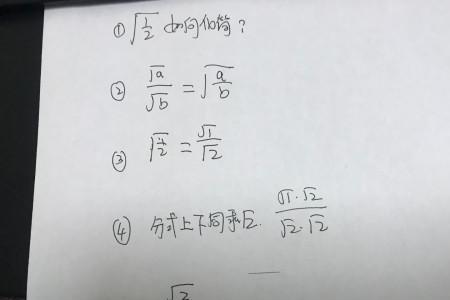 ① √(1/2) 如何化简？
② √a/√b = √(a/b)
③ √(1/2) = √1/√2
④ 分式上下同乘√2. (√1·√2)/(√2·√2)
√2